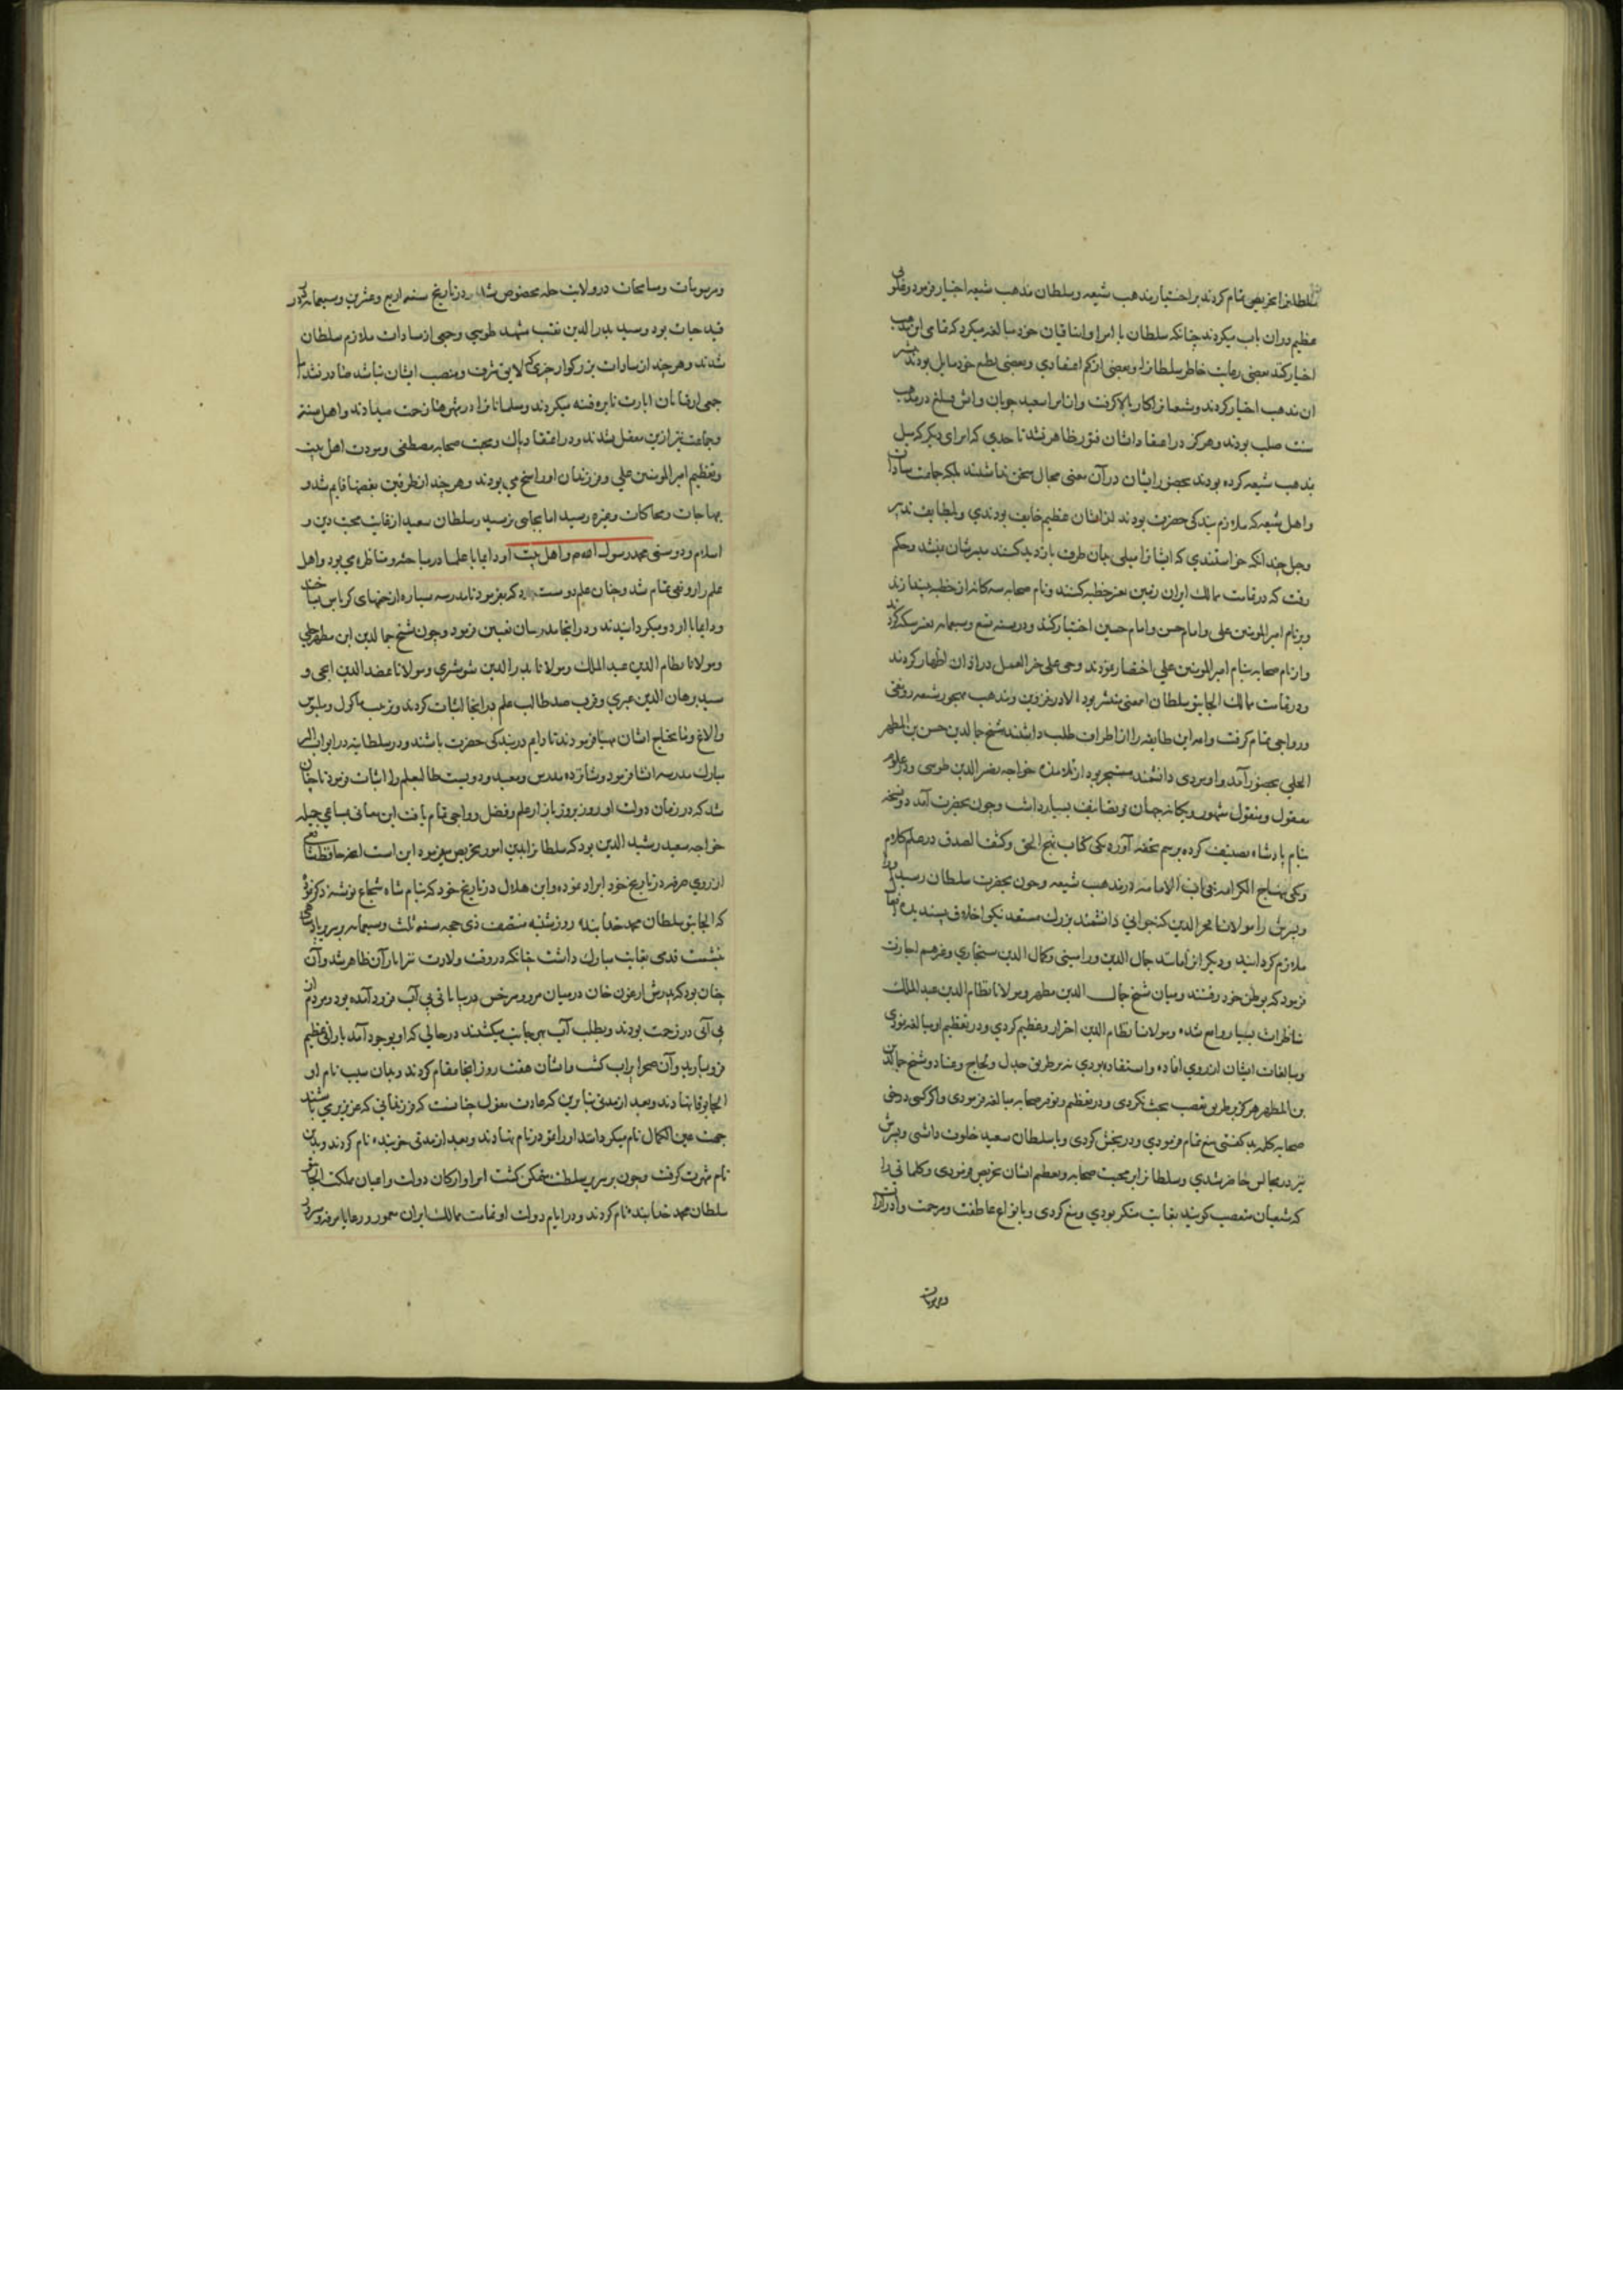 سلطانرا تحریض تمام کردند بر اختیار مذهب شیعه و سلطان مذهب شیعه اختیار فرمود و غلوی
عظیم در آن باب میکردند چنانکه سلطان با امرا و ایناقیان خود مبالغه میکرد که تمامی این مذهب
اختیار کنند بعضی رعایت خاطر سلطانرا و بعضی از کم اعتقادی و بعضی بطبع خود مایل بودند
آن مذهب اختیار کردند و شیعیانرا کار بالا گرفت و از امرا سعید چوبان و در مذهب
سنت صلب بودند و هرگز در اعتقاد ایشان فتور ظاهر نشد تا حدی که امرای دیگر که میل
بمذهب شیعه کرده بودند بحضور ایشان در آن معنی مجال سخن نداشتند بلکه جماعت سادات
و اهل شیعه که ملازم بندگی حضرت بودند از ایشان عظیم خایف بودندی و بلطایف تدبیر
و حیل چندانکه خواستندی که ایشانرا میلی بدان طرف بازدید کنند میسرشان نمیشد و حکم
رفت که در تمامت ممالک ایران زمین تغییر خطبه کنند و نام صحابه سه گانه از خطبه بیندازند
و بر نام امیر المومنین علی و امام حسن و امام حسین اختیار کنند و در سنه تسع و سبعمایه تغییر سکه کردند
و از نام صحابه بنام امیر المومنین علی اختصار نمودند و حی علی خیر العمل در اذان اظهار کردند
و در تمامت ممالک الجایتو سلطان این معنی منتشر بود الا در قزوین و مذهب شیعه رونقی
و رواجی تمام گرفت و ایمه این طایفه را از اطراف طلب داشتند شیخ جمال الدین حسن بن المطهر
الحلی بحضور آمد و او مردی دانشمند متبحر بود از تلامذه خواجه نصیر الدین طوسی و در علوم
معقول و منقول مشهور و یگانه جهان و تصانیف بسیار داشت و چون بحضرت آمد دو نسخه
بنام پادشاه تصنیف کرده برسم تحفه آورد یکی کتاب نهج الحق و کشف الصدق در علم کلام
و یکی منهاج الکرامه فی باب الامامه در مذهب شیعه و چون بحضرت سلطان رسید او را
و پسرش را مولانا فخر الدین که جوانی دانشمند بزرگ مستعد نیکو اخلاق پسندیده
ملازم گردانید و دیگر ائمه مانند جمال الدین ورامینی و کمال الدین سنجاری و غیرهم اجازت
فرمود که بوطن خود رفتند و میان شیخ جمال الدین مطهر و مولانا نظام الدین عبد الملک
مناظرات بسیار واقع شد و مولانا نظام الدین احترار و عظیم کردی و در تعظیم او مبالغه نمودی
و مبالغات ایشان از روی افاده و استفاده بودی نه بر طریق جدل و لجاج و عناد و شیخ جمال الدین
بن المطهر هرگز بر طریق تعصب بحث نکردی و در تعظیم و توقیر صحابه مبالغه فرمودی و اگر کسی در حق
صحابه کلمه بد گفتی منع تمام فرمودی و رنجش کردی و با سلطان سعید خلوت داشتی و پسرش
نیز در مجالس حاضر شدی و سلطانرا بر محبت صحابه و تعظیم ایشان تحریض فرمودی و کلماتی را
که شیعیان متعصب گویند بغایت منکر بودی و منع کردی و بانواع عاطفت و مرحمت و ادرارات
و مرسومات
و مرسومات و مسامحات در ولایت حله مخصوص شد در تاریخ سنه اربع و عشرین و سبعمایه در
قید حیات بود و سید بدر الدین نقیب مشهد طوسی و جمعی از سادات ملازم سلطان
شدند و هر چند از سادات بزرگوار چیزی که لایق شرف و منصب ایشان نباشد صادر نشد اما
جمعی اوقات اثارت نایره فتنه میکردند و مسلمانانرا در شهرها زحمت میدادند و اهل سنة
و جماعت نیز ازین معقل شدند و در اعتقاد پاک و محبت صحابه مصطفی و مودت اهل بیت
و تعظیم امیر المومنین علی و فرزندان او راسخ می بودند و هر چند از طرفین بعضها قایم شد و
بهاجات و محاکات و غیره رسید اما بجایی نرسید و سلطان سعید از غایت محبت دین و
اسلام و دوستی محمد رسول الله م و اهل بیت او دایما با علما در مباحثه و مناظره می بود و اهل
علم را رونقی تمام شد و چنان علم دوست بود که بفرمود تا مدرسه سیاره از خیمهای کرباس بساختند
و دایما با اردو میگردانیدند و در آنجا مدرسان تعیین فرمود و چون شیخ جمال الدین ابن مطهر حلی
و مولانا نظام الدین عبد الملک و مولانا بدر الدین شوشتری و مولانا عضد الدین ایجی و
سید برهان الدین عبری و قرب صد طالب علم در آنجا اثبات کردند و ترتیب ماکول و ملبوس
و الاغ و مایحتاج ایشان مهیا فرمودند تا دایم در بندگی حضرت باشند و در سلطانیه در ابواب البر
مبارک مدرسه انشا فرمود و شانزده مدرس و معید و دویست طالبعلم را اثبات فرمود تا چنان
شد که در زمان دولت او روز بروز بازار علم و فضل رواجی تمام یافت این معانی بمساعی جمیله
خواجه سعید رشید الدین بود که سلطانرا بدین امور تحریض میفرمود این است آنچه حافظ
از روی معرفه در تاریخ خود ایراد نموده و ابن هلال در تاریخ خود که بنام شاه شجاع نوشته ذکر نموده
که الجایتو سلطان محمد خدا بنده روز شنبه منتصف ذی حجه سنه ثلث و سبعمایه بر سریر پادشاهی
نشست قدمی بغایت مبارک داشت چنانکه در وقت ولادت نیز اثار آن ظاهر شد و آن
چنان بود که پدرش ارغون خان در میان مرو و سرخس در بیابانی بی آب فرود آمده بود و مردم از
بی آبی در زحمت بودند و بطلب آب بهر جانب میگشتند در حالی که او بوجود آمد بارانی عظیم
فرو بارید و آن صحرا پر آب گشت و ایشان هفت روز آنجا مقام کردند و بدان سبب نام او
الجایوقا نهادند و بعد از مدتی بنابرین که عادت مغول چنانست که فرزندانی که عزیز می باشند
جهت عین الکمال نام میگردانند او را تمودر نام نهادند و بعد از مدتی خربنده نام کردند و بدین
نام شهرت گرفت و چون بر سریر سلطنت متمکن گشت امرا و ارکان دولت و اعیان مملکت الجایتو
سلطان محمد خدابنده نام کردند و در ایام دولت او تمامت ممالک ایران معمور و رعایا مرفه و مسرور